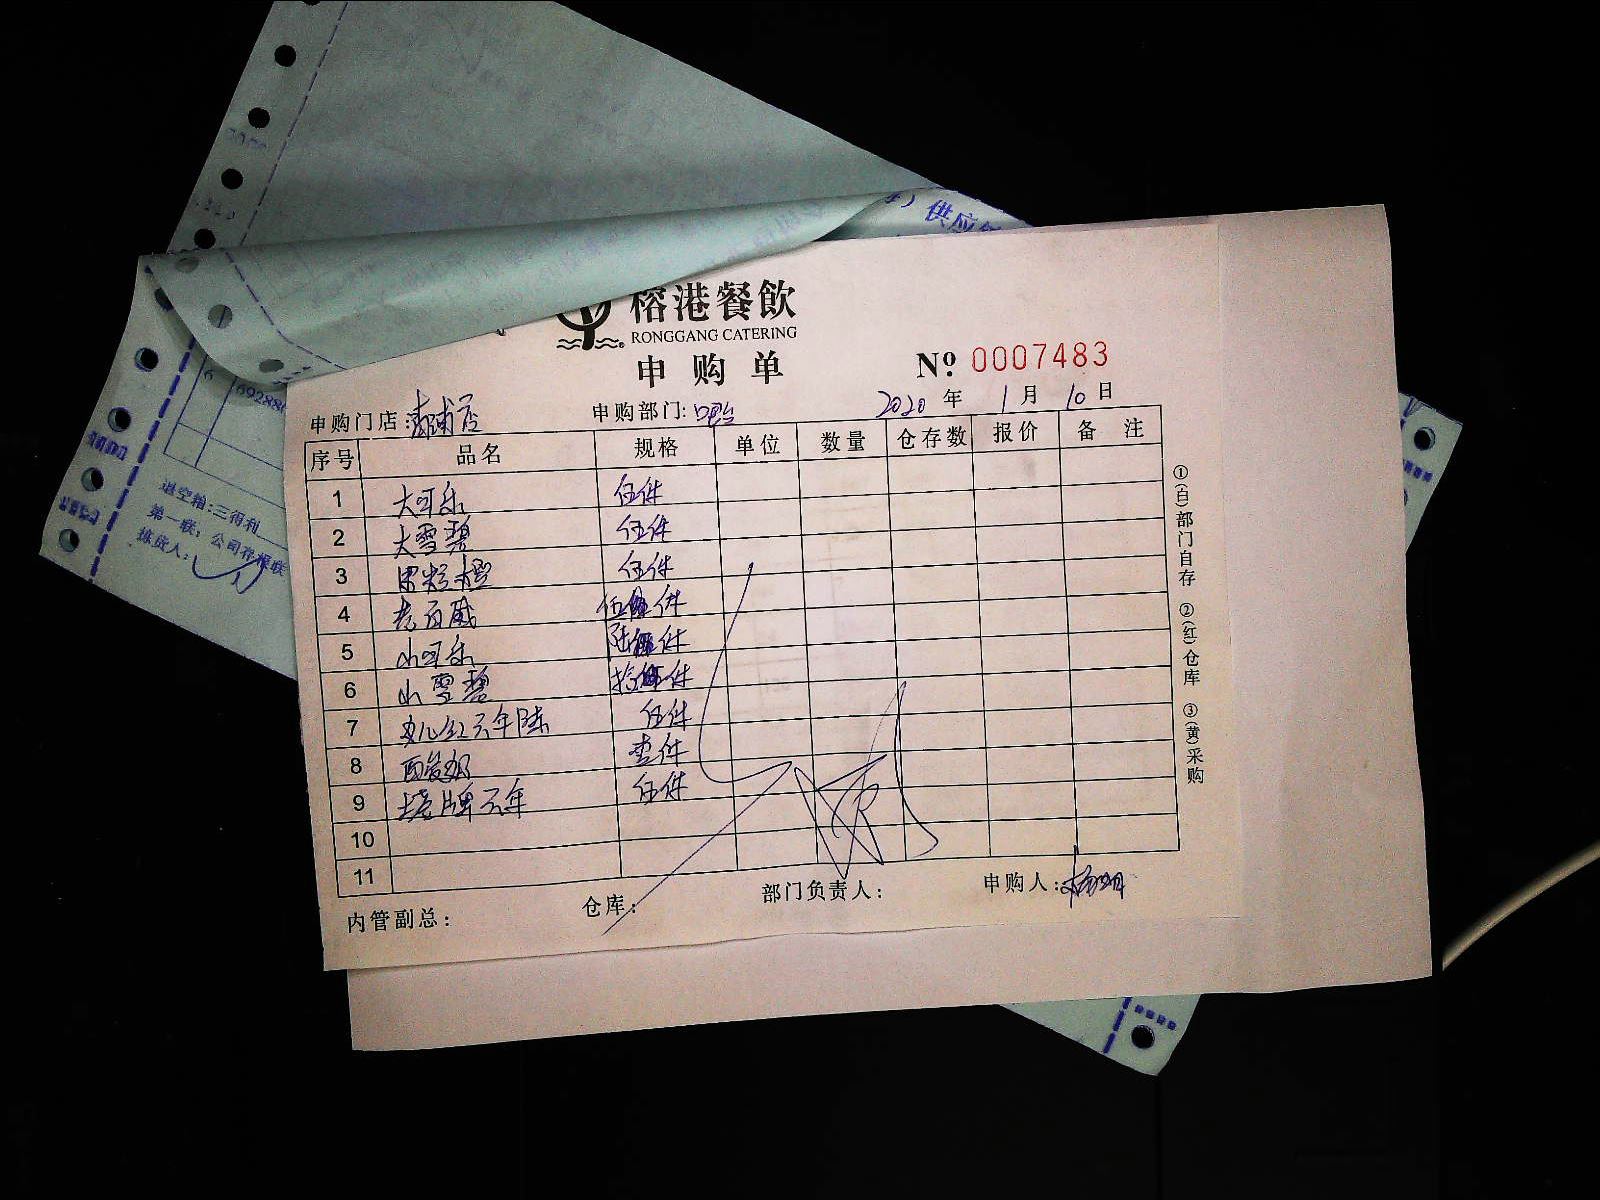 供应
榕港餐飲
RONGGANG CATERING
申购单
№ 0007483
申购门店:青浦店 申购部门:吧台 2020 年 1 月 10 日
序号 品名 规格 单位 数量 仓存数 报价 备注
1 大可乐 伍件
2 大雪碧 伍件
3 果粒橙 伍件
4 老百威 件
5 小可乐 陆件
6 小雪碧 拾件
7 女儿红六年陈 伍件
8 酸奶 壹件
9 塔牌六年 伍件
10
11
内管副总: 仓库: 部门负责人: 申购人:
①(白)部门自存 ②(红)仓库 ③(黄)采购
6 69288
退空箱:三得利
第一联:公司存根联
拣货人: